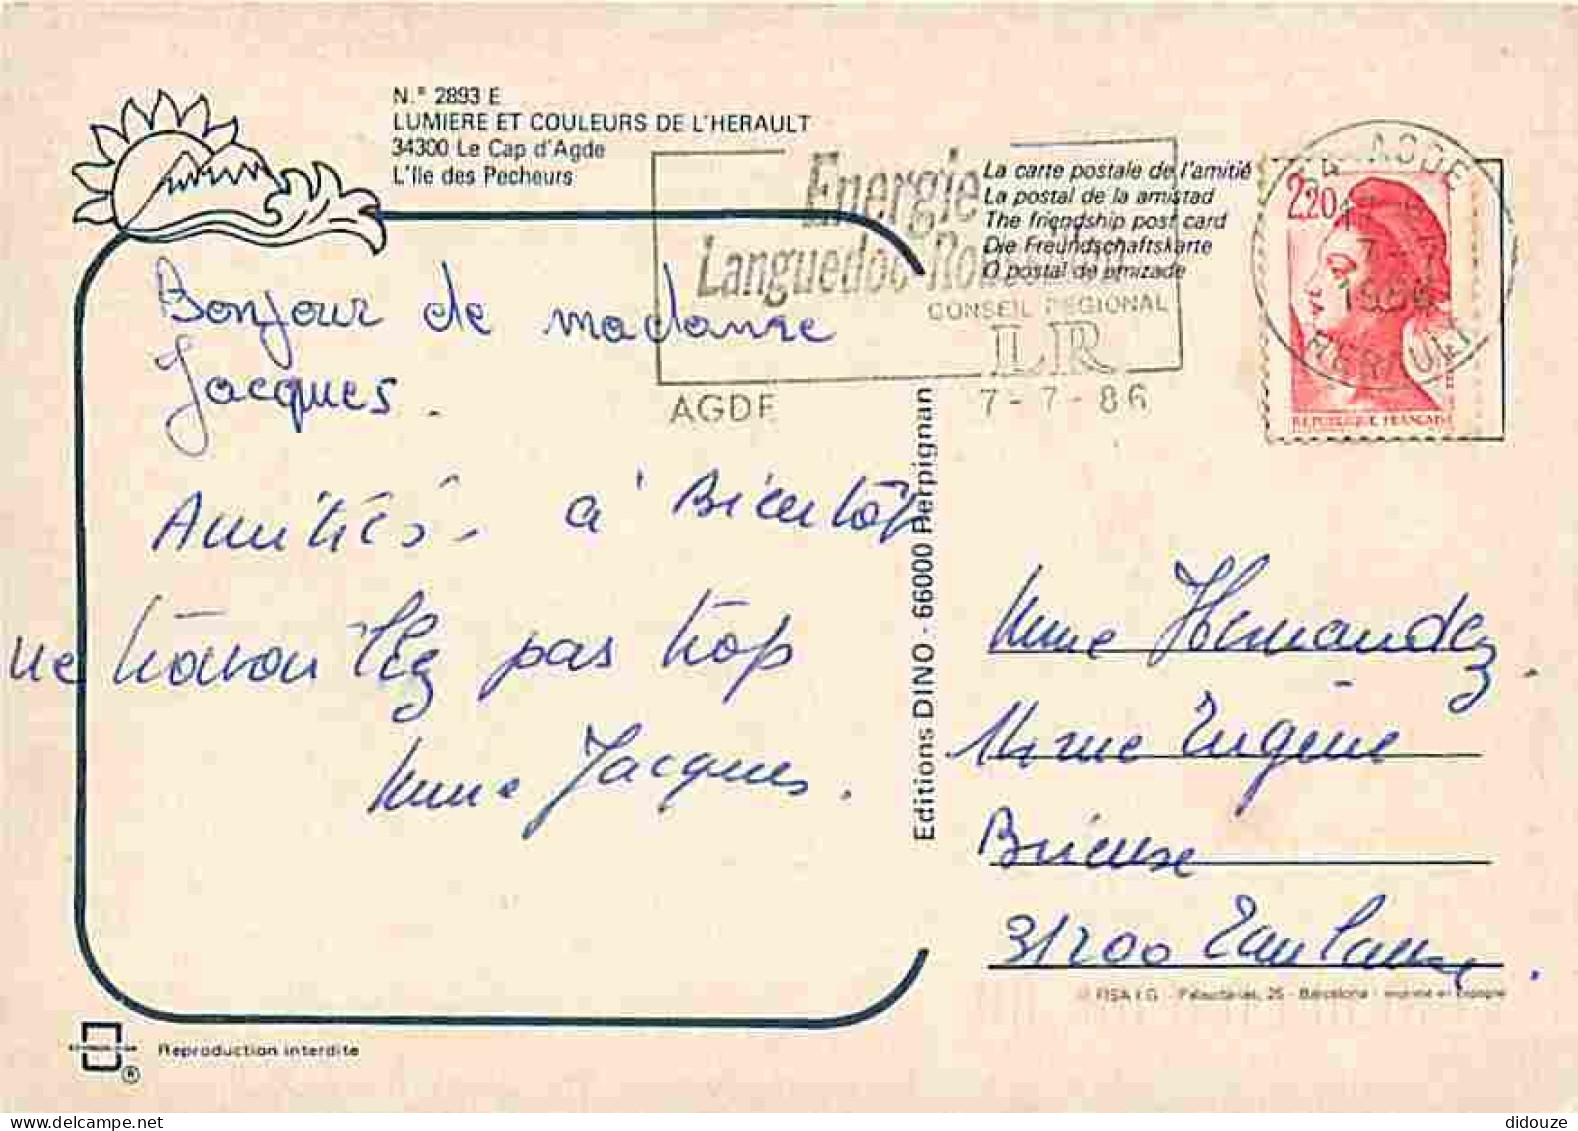 N.º 2893 E
LUMIERE ET COULEURS DE L'HERAULT
34300 Le Cap d'Agde
L'Ile des Pecheurs
La carte postale de l'amitié
La postal de la amistad
The friendship post card
Die Freundschaftskarte
O postal de amizade
Energie
Languedoc-Ro
CONSEIL REGIONAL
LR
AGDE
7-7-86
AGDE
1986
HERAULT
2,20
REPUBLIQUE FRANÇAISE
Bonjour de madame
Jacques.
Amitiés - à Bientôt
ne travaillez pas trop
Mme Jacques.
Editions DINO - 66000 Perpignan
Mme Hernandez
Eugène
31200 Toulouse.
FISA I.G. - Palaudarias, 26 - Barcelona - Imprimé en Espagne
Reproduction interdite
®
didouze